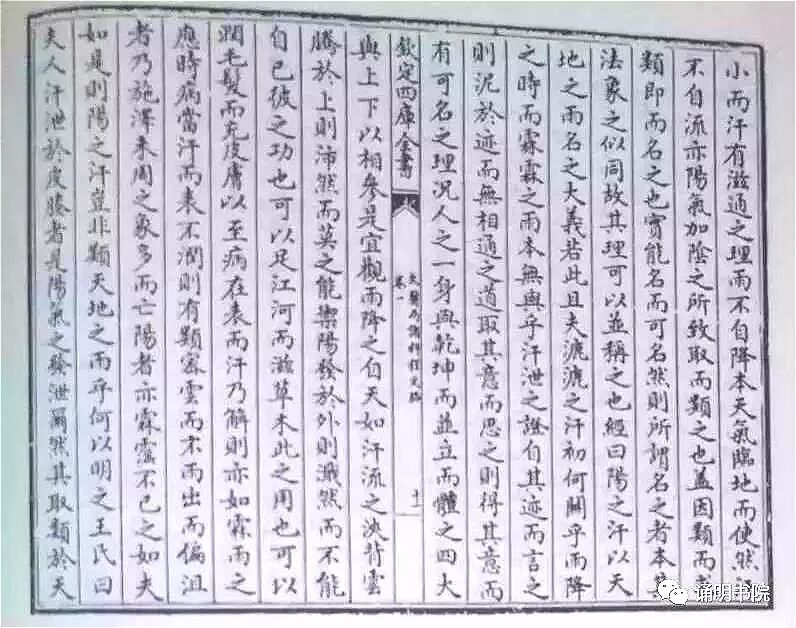 小而汗有滋通之理雨不自降本天氣臨地而使然
不自流亦陽氣加陰之所致取而類之也蓋因類而
類即而名之也實能名而可名然則所謂名之者本其
法象之似同故其理可以並稱之也經曰陽之汗以天
地之雨名之大義若此且夫漉漉之汗初何關乎雨降
之時而霖霖之雨本無與乎汗泄之證自其迹而言之
則泥於迹而無相通之道取其意而思之則得其意而
有可名之理況人之一身與乾坤而並立而體之四大
欽定四庫全書
太醫局諸科程文格
卷一
十一
與上下以相參是宜觀雨降之自天如汗流之浹背雲
騰於上則沛然而莫之能禦陽發於外則濈然而不能
自已彼之功也可以足江河而滋草木此之用也可以
潤毛髮而充皮膚以至病在表而汗乃解則亦如霖雨之
應時病當汗而表不潤則有類密雲而不雨出而偏沮
者乃施澤未周之象多而亡陽者亦霖霪不已之如夫
如是則陽之汗豈非類天地之雨乎何以明之王氏曰
夫人汗泄於皮腠者是陽氣之發泄爾然其取類於天
诵明书院